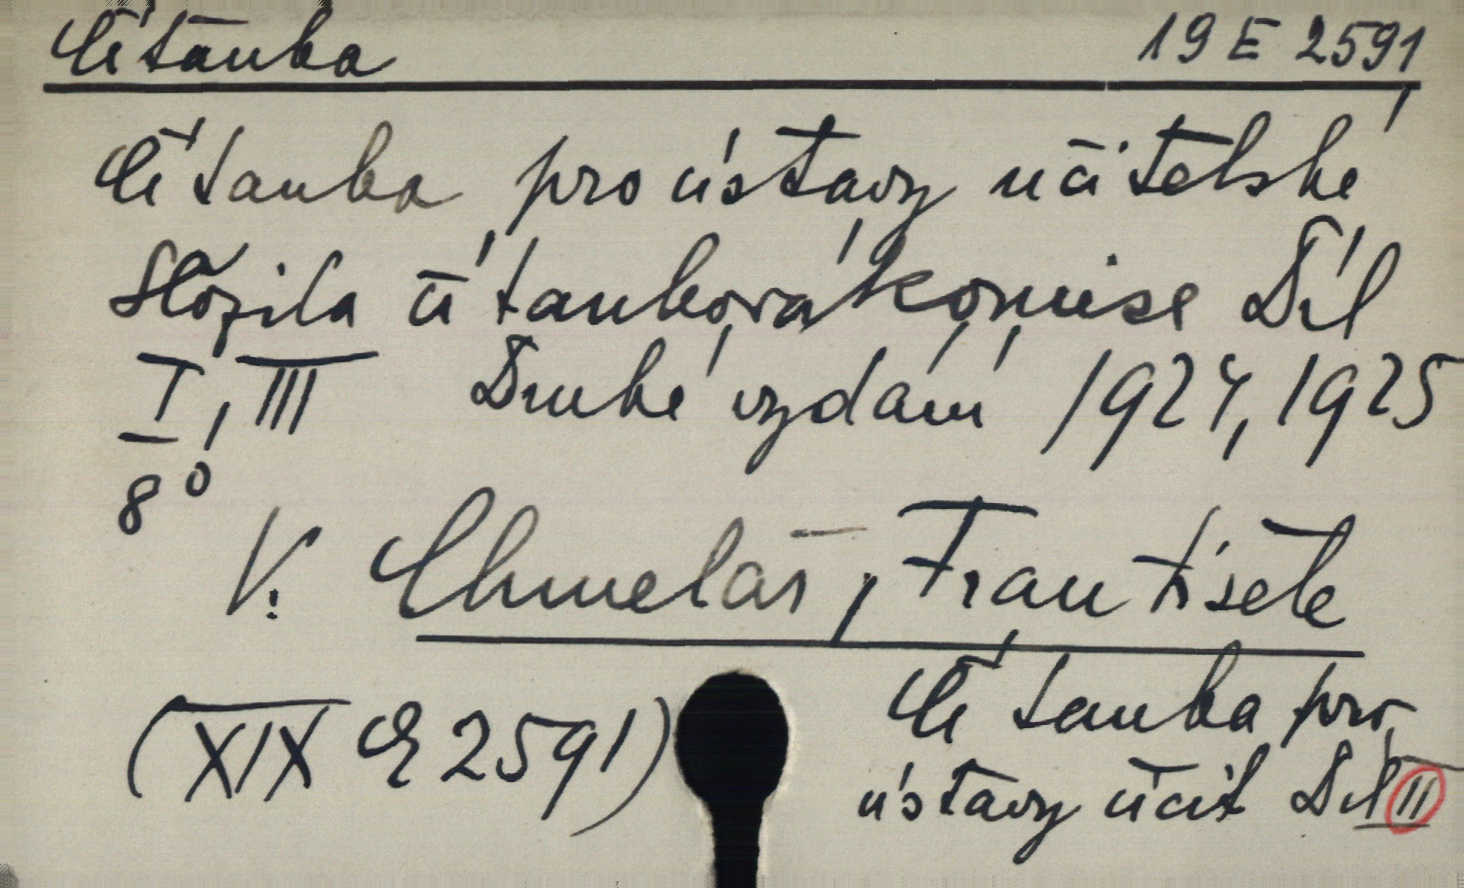 Čítanka 19 E 2591
Čítanka pro ústavy učitelské
Složila čítanková komise Díl
I, III Druhé vydání 1924, 1925
8°
V. Chmelař, František
Čítanka pro
(XIX E 2591)
ústavy učit Díl II